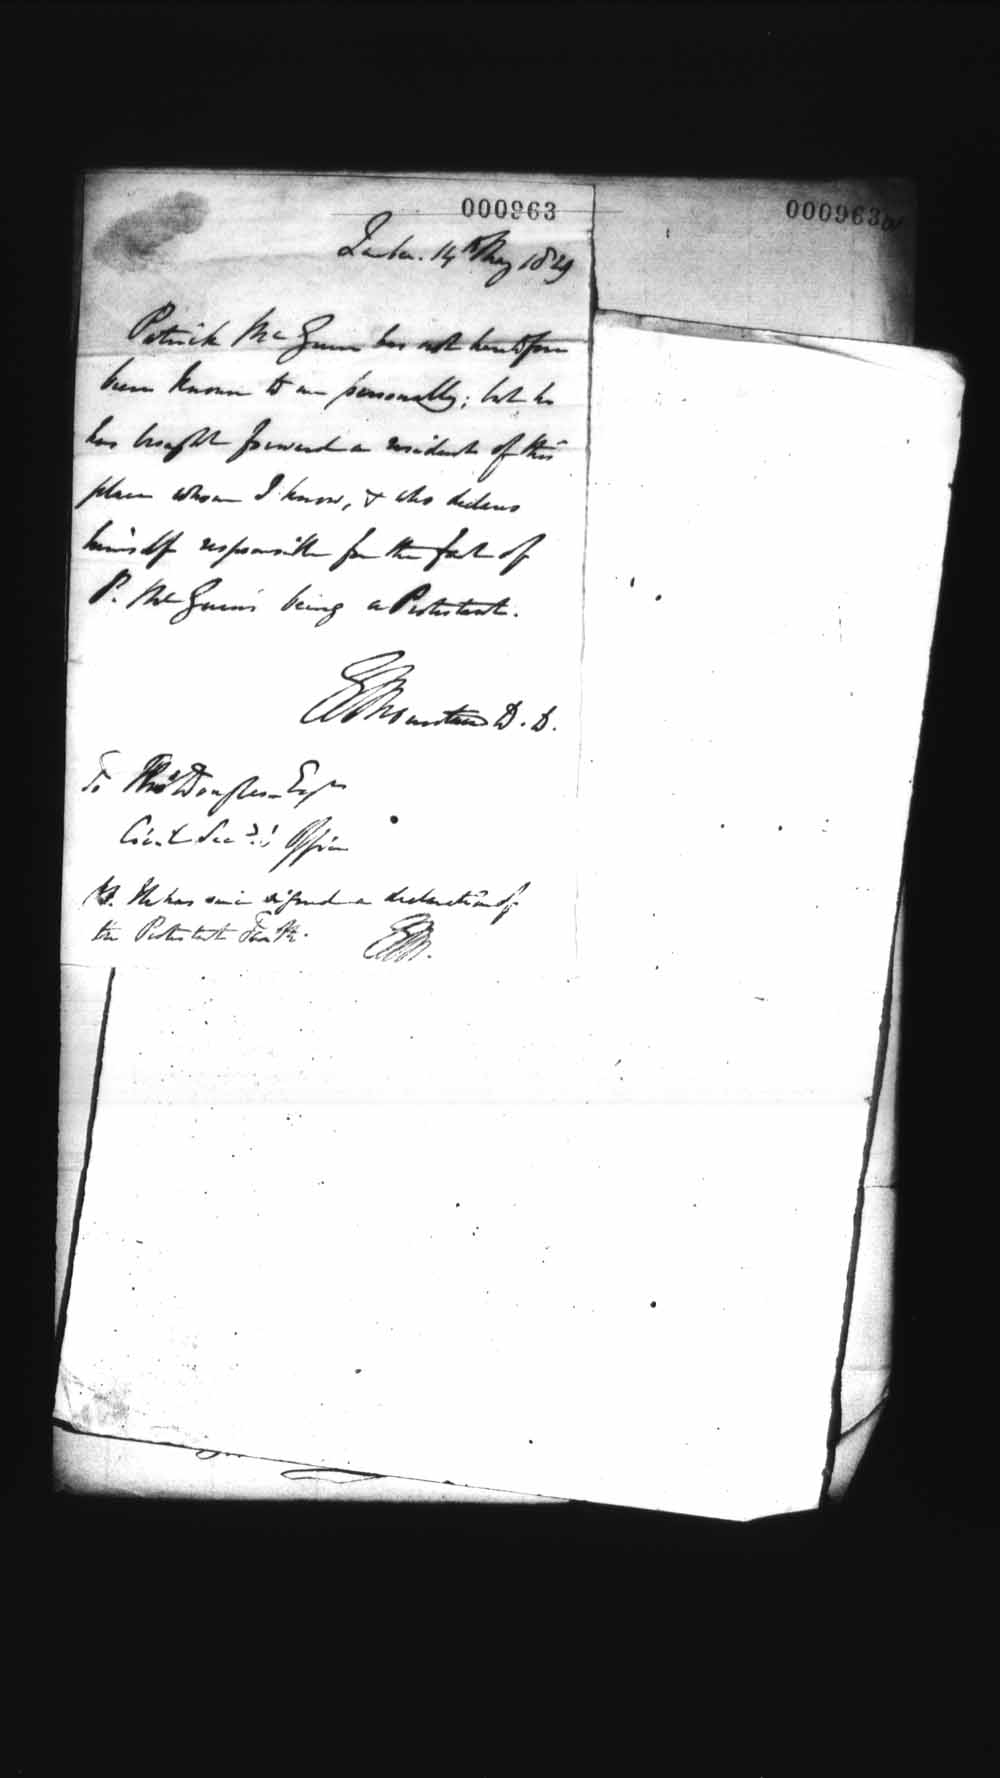 000963
000963a
Quebec. 14th May 1829
Patrick McGuinn has not heretofore
been known to me personally; but he
has brought forward a resident of this
place whom I know, & who declares
himself responsible for the fact of
P. McGuinn's being a Protestant.
Mountain D. D.
To Thos Douglas Esqre
Civil Secy's Office
He has since signed a declaration of
the Protestant Faith.